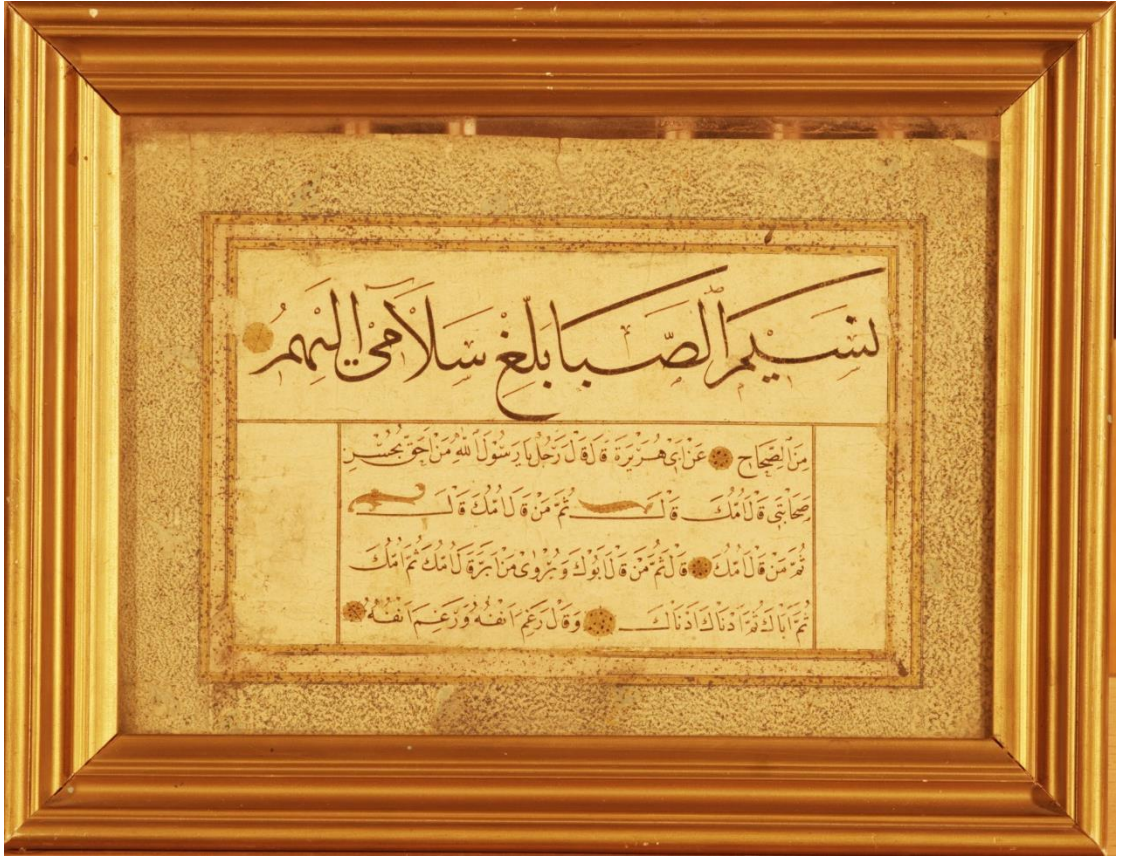 نَسِيمَ الصَّبَا بَلِّغْ سَلَامِي إِلَيْهِمُ
مِنَ الصِّحَاحِ عَنْ أَبِي هُرَيْرَةَ قَالَ قَالَ رَجُلٌ يَا رَسُولَ اللّٰهِ مَنْ أَحَقُّ بِحُسْنِ
صَحَابَتِي قَالَ أُمُّكَ قَالَ ثُمَّ مَنْ قَالَ أُمُّكَ قَالَ
ثُمَّ مَنْ قَالَ أُمُّكَ قَالَ ثُمَّ مَنْ قَالَ أَبُوكَ وَيُرْوٰى مَنْ أَبَرُّ قَالَ أُمَّكَ ثُمَّ أُمَّكَ
ثُمَّ أَبَاكَ ثُمَّ أَدْنَاكَ أَدْنَاكَ وَقَالَ رَغِمَ أَنْفُهُ وَرَغِمَ أَنْفُهُ